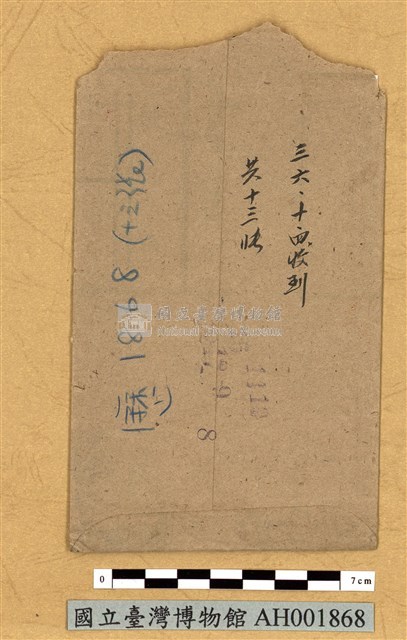 三六、十、四收到
共十三張
(歷(二)) 1868 (十三張)
1313
8
國立臺灣博物館
National Taiwan Museum
0
7cm
國立臺灣博物館 AH001868